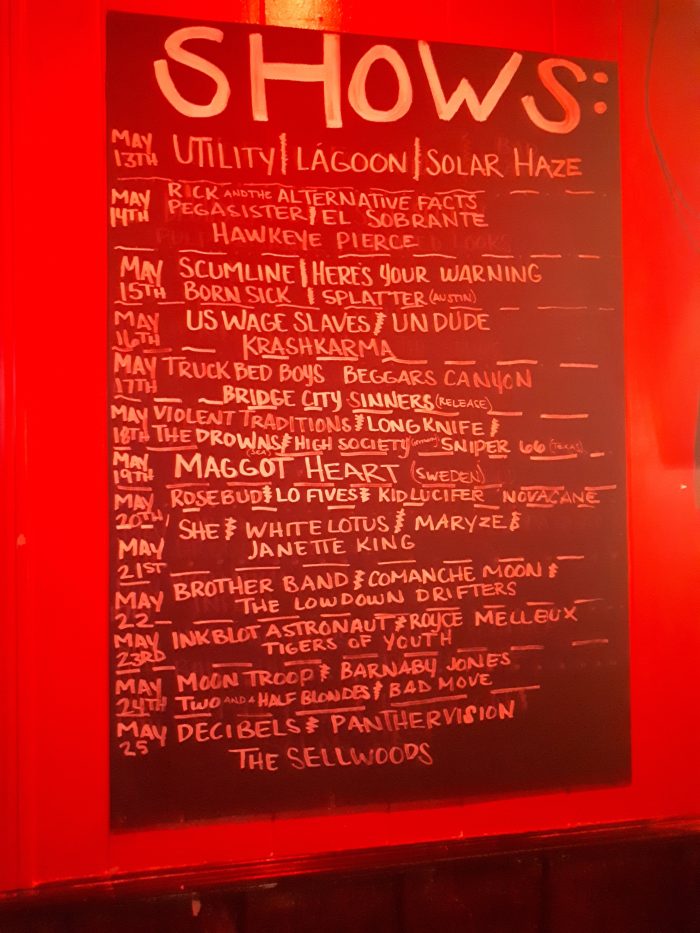 SHOWS:
MAY 13TH UTILITY | LAGOON | SOLAR HAZE
MAY 14TH RICK AND THE ALTERNATIVE FACTS
PEGASISTER | EL SOBRANTE
HAWKEYE PIERCE
MAY 15TH SCUMLINE | HERE'S YOUR WARNING
BORN SICK | SPLATTER (AUSTIN)
MAY 16TH US WAGE SLAVES | UN DUDE
KRASHKARMA
MAY 17TH TRUCK BED BOYS BEGGARS CANYON
BRIDGE CITY SINNERS (RELEASE)
MAY 18TH VIOLENT TRADITIONS | LONG KNIFE |
THE DROWNS (SEA) | HIGH SOCIETY (GERMANY) SNIPER 66 (TEXAS)
MAY 19TH MAGGOT HEART (SWEDEN)
MAY 20TH ROSEBUD | LO FIVES | KID LUCIFER NOVACANE
MAY 21ST SHE | WHITE LOTUS | MARYZE |
JANETTE KING
MAY 22 BROTHER BAND | COMANCHE MOON |
THE LOWDOWN DRIFTERS
MAY 23RD INKBLOT ASTRONAUT | ROYCE MELLEUX
TIGERS OF YOUTH
MAY 24TH MOON TROOP | BARNABY JONES
TWO AND A HALF BLONDES | BAD MOVE
MAY 25 DECIBELS | PANTHERVISION
THE SELLWOODS